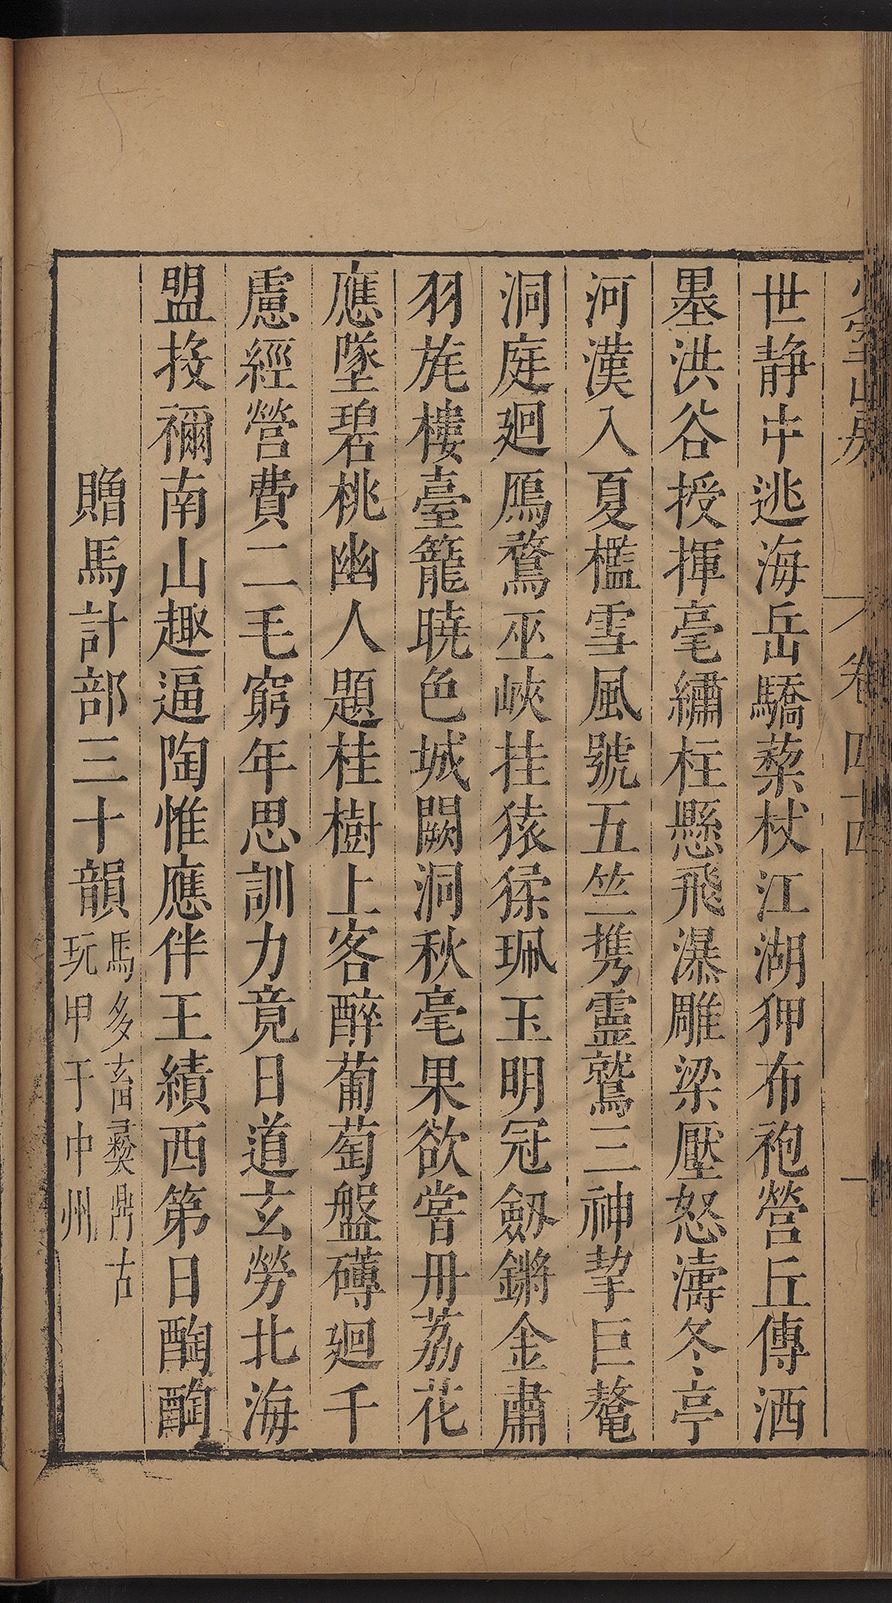 少室山房
卷四十四
一
世静中逃海岳驕藜杖江湖狎布袍營丘傳洒
墨洪谷授揮毫繡柱懸飛瀑雕梁壓怒濤冬亭
河漢入夏檻雪風號五竺携靈鷲三神挈巨鼇
洞庭廻鴈鶩巫峽挂猿猱珮玉明冠劔鏘金肅
羽旄樓臺籠曉色城闕洞秋毫果欲嘗冊荔花
應墜碧桃幽人題桂樹上客醉葡萄盤礴廻千
慮經營費二毛窮年思訓力竟日道玄勞北海
盟投禰南山趣逼陶惟應伴王績西第日酶醄
贈馬計部三十韻馬多畜彝鼎古
玩甲于中州